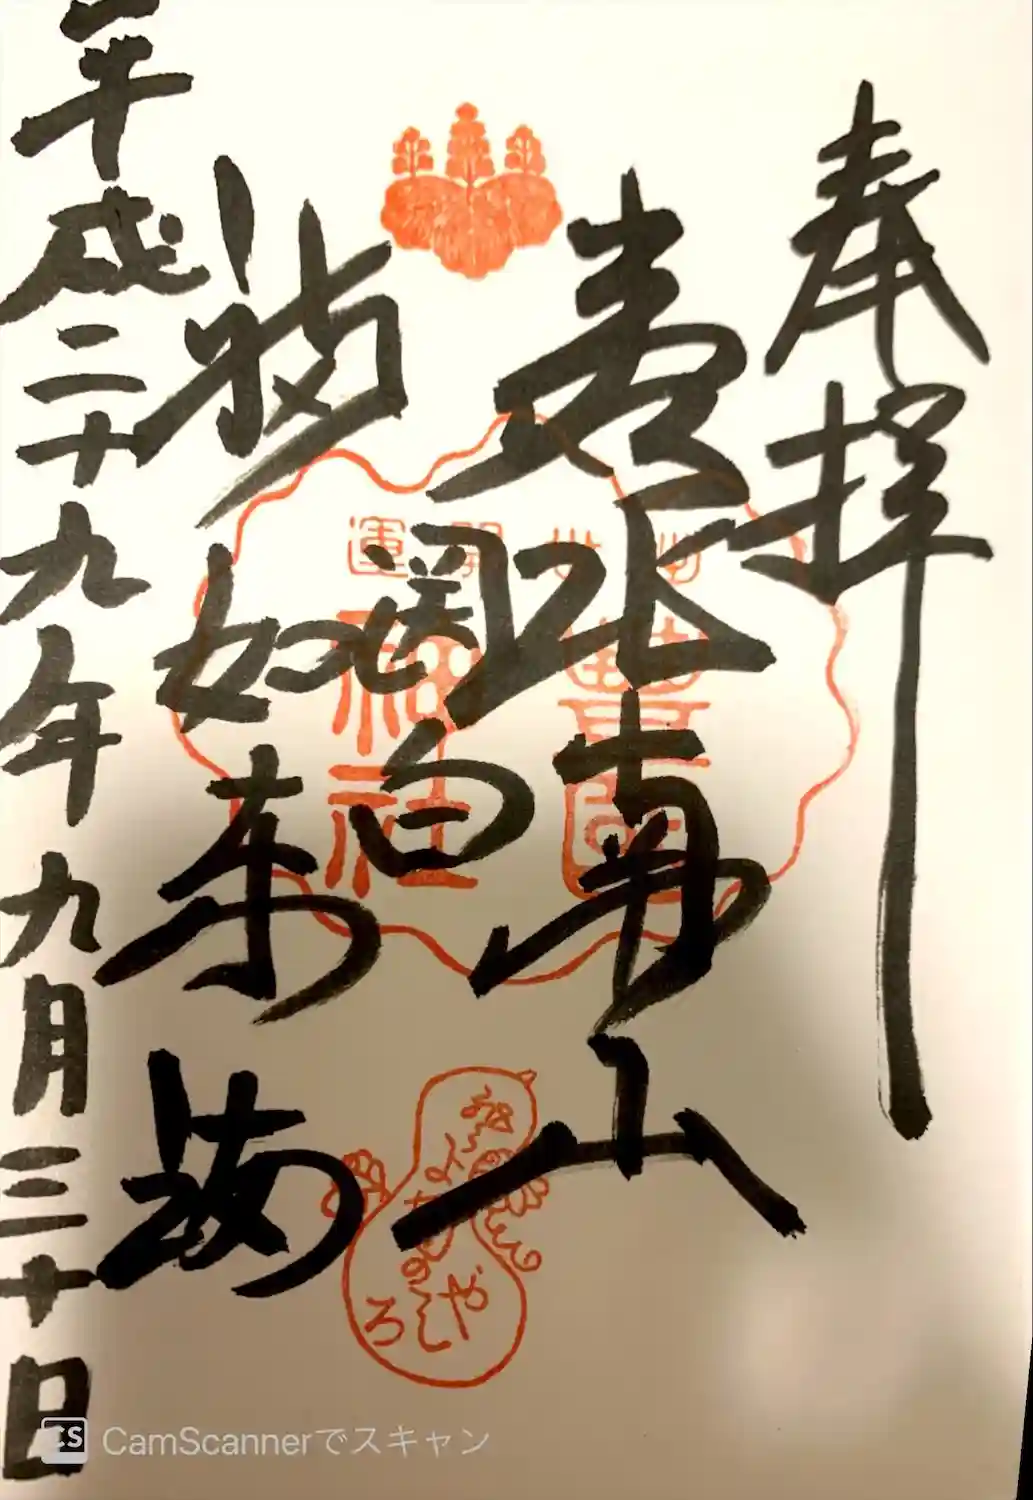 奉拝
寿比南山
関白
福如東海
平成二十九年九月三十日
出世
開運
豊國
神社
CS CamScannerでスキャン